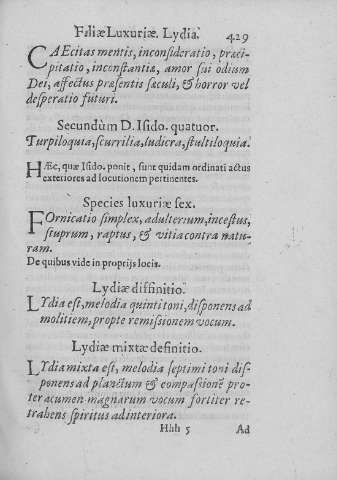 Filiæ Luxuriæ. Lydia. 429
CAEcitas mentis, inconsideratio, præci-
pitatio, inconstantia, amor sui odium
Dei, affectus præsentis sæculi, & horror vel
desperatio futuri.
Secundùm D. Isido. quatuor.
Turpiloquia, scurrilia, ludicra, stultiloquia.
HÆc, quæ Isido. ponit, sunt quidam ordinati actus
exteriores ad locutionem pertinentes.
Species luxuriæ sex.
FOrnicatio simplex, adulterium, incestus,
stuprum, raptus, & vitia contra natu-
ram.
De quibus vide in proprijs locis.
Lydiæ diffinitio.
LYdia est, melodia quinti toni, disponens ad
molitiem, propte remissionem vocum.
Lydiæ mixtæ definitio.
LYdia mixta est, melodia septimi toni dis-
ponens ad planctum & compassionē pro-
ter acumen magnarum vocum fortiter re-
trahens spiritus ad interiora.
Hhh 5 Ad